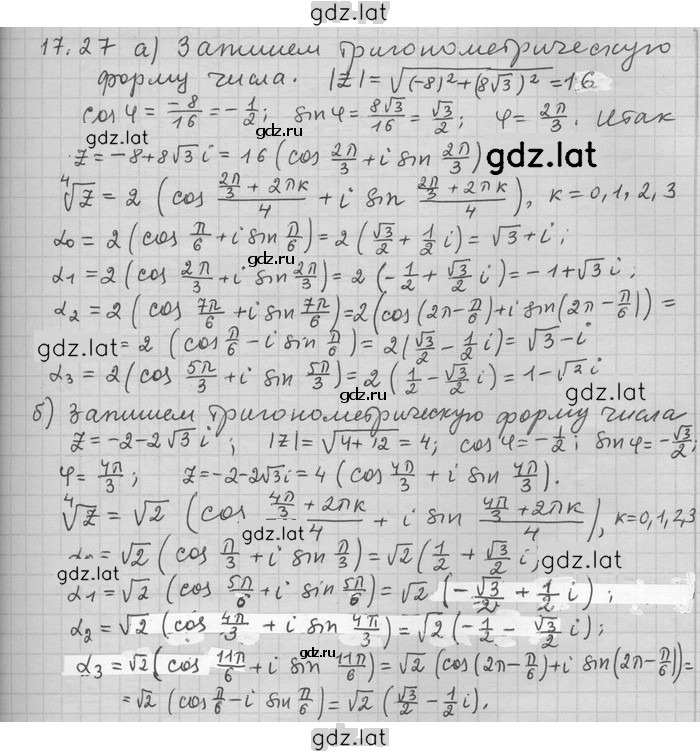 gdz.lat
17.27 а) Запишем тригонометрическую
форму числа. |z| = √((-8)² + (8√3)²) = 16
cos φ = -8/16 = -1/2; sin φ = 8√3/16 = √3/2; φ = 2π/3. Итак
gdz.lat
z = -8 + 8√3 i = 16 (cos 2π/3 + i sin 2π/3)
gdz.lat
⁴√z = 2 (cos (2π/3 + 2πk)/4 + i sin (2π/3 + 2πk)/4), k = 0, 1, 2, 3
α₀ = 2 (cos π/6 + i sin π/6) = 2 (√3/2 + 1/2 i) = √3 + i;
gdz.lat
α₁ = 2 (cos 2π/3 + i sin 2π/3) = 2 (-1/2 + √3/2 i) = -1 + √3 i;
α₂ = 2 (cos 7π/6 + i sin 7π/6) = 2 (cos (2π - π/6) + i sin (2π - π/6)) =
gdz.lat
= 2 (cos π/6 - i sin π/6) = 2 (√3/2 - 1/2 i) = √3 - i
α₃ = 2 (cos 5π/3 + i sin 5π/3) = 2 (1/2 - √3/2 i) = 1 - √2 i
б) Запишем тригонометрическую форму числа
z = -2 - 2√3 i; |z| = √(4 + 12) = 4; cos φ = -1/2; sin φ = -√3/2;
φ = 4π/3; z = -2 - 2√3 i = 4 (cos 4π/3 + i sin 4π/3).
⁴√z = √2 (cos (4π/3 + 2πk)/4 + i sin (4π/3 + 2πk)/4), k = 0, 1, 2, 3
gdz.lat
α₀ = √2 (cos π/3 + i sin π/3) = √2 (1/2 + √3/2 i;
gdz.lat
gdz.lat
α₁ = √2 (cos 5π/6 + i sin 5π/6) = √2 (-√3/2 + 1/2 i);
α₂ = √2 (cos 4π/3 + i sin 4π/3) = √2 (-1/2 - √3/2 i);
α₃ = √2 (cos 11π/6 + i sin 11π/6) = √2 (cos (2π - π/6) + i sin (2π - π/6)) =
= √2 (cos π/6 - i sin π/6) = √2 (√3/2 - 1/2 i).
gdz.lat